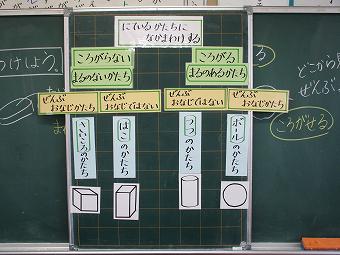 にているかたちに
なかまわけする
ころがらない
まるのないかたち
ころがる
まるのあるかたち
ぜんぶ
おなじかたち
ぜんぶ
おなじではない
ぜんぶ
おなじではない
ぜんぶ
おなじかたち
さいころのかたち
はこのかたち
つつのかたち
ボールのかたち
つけしょう。
どこから見
ぜんぶ
ころがせる